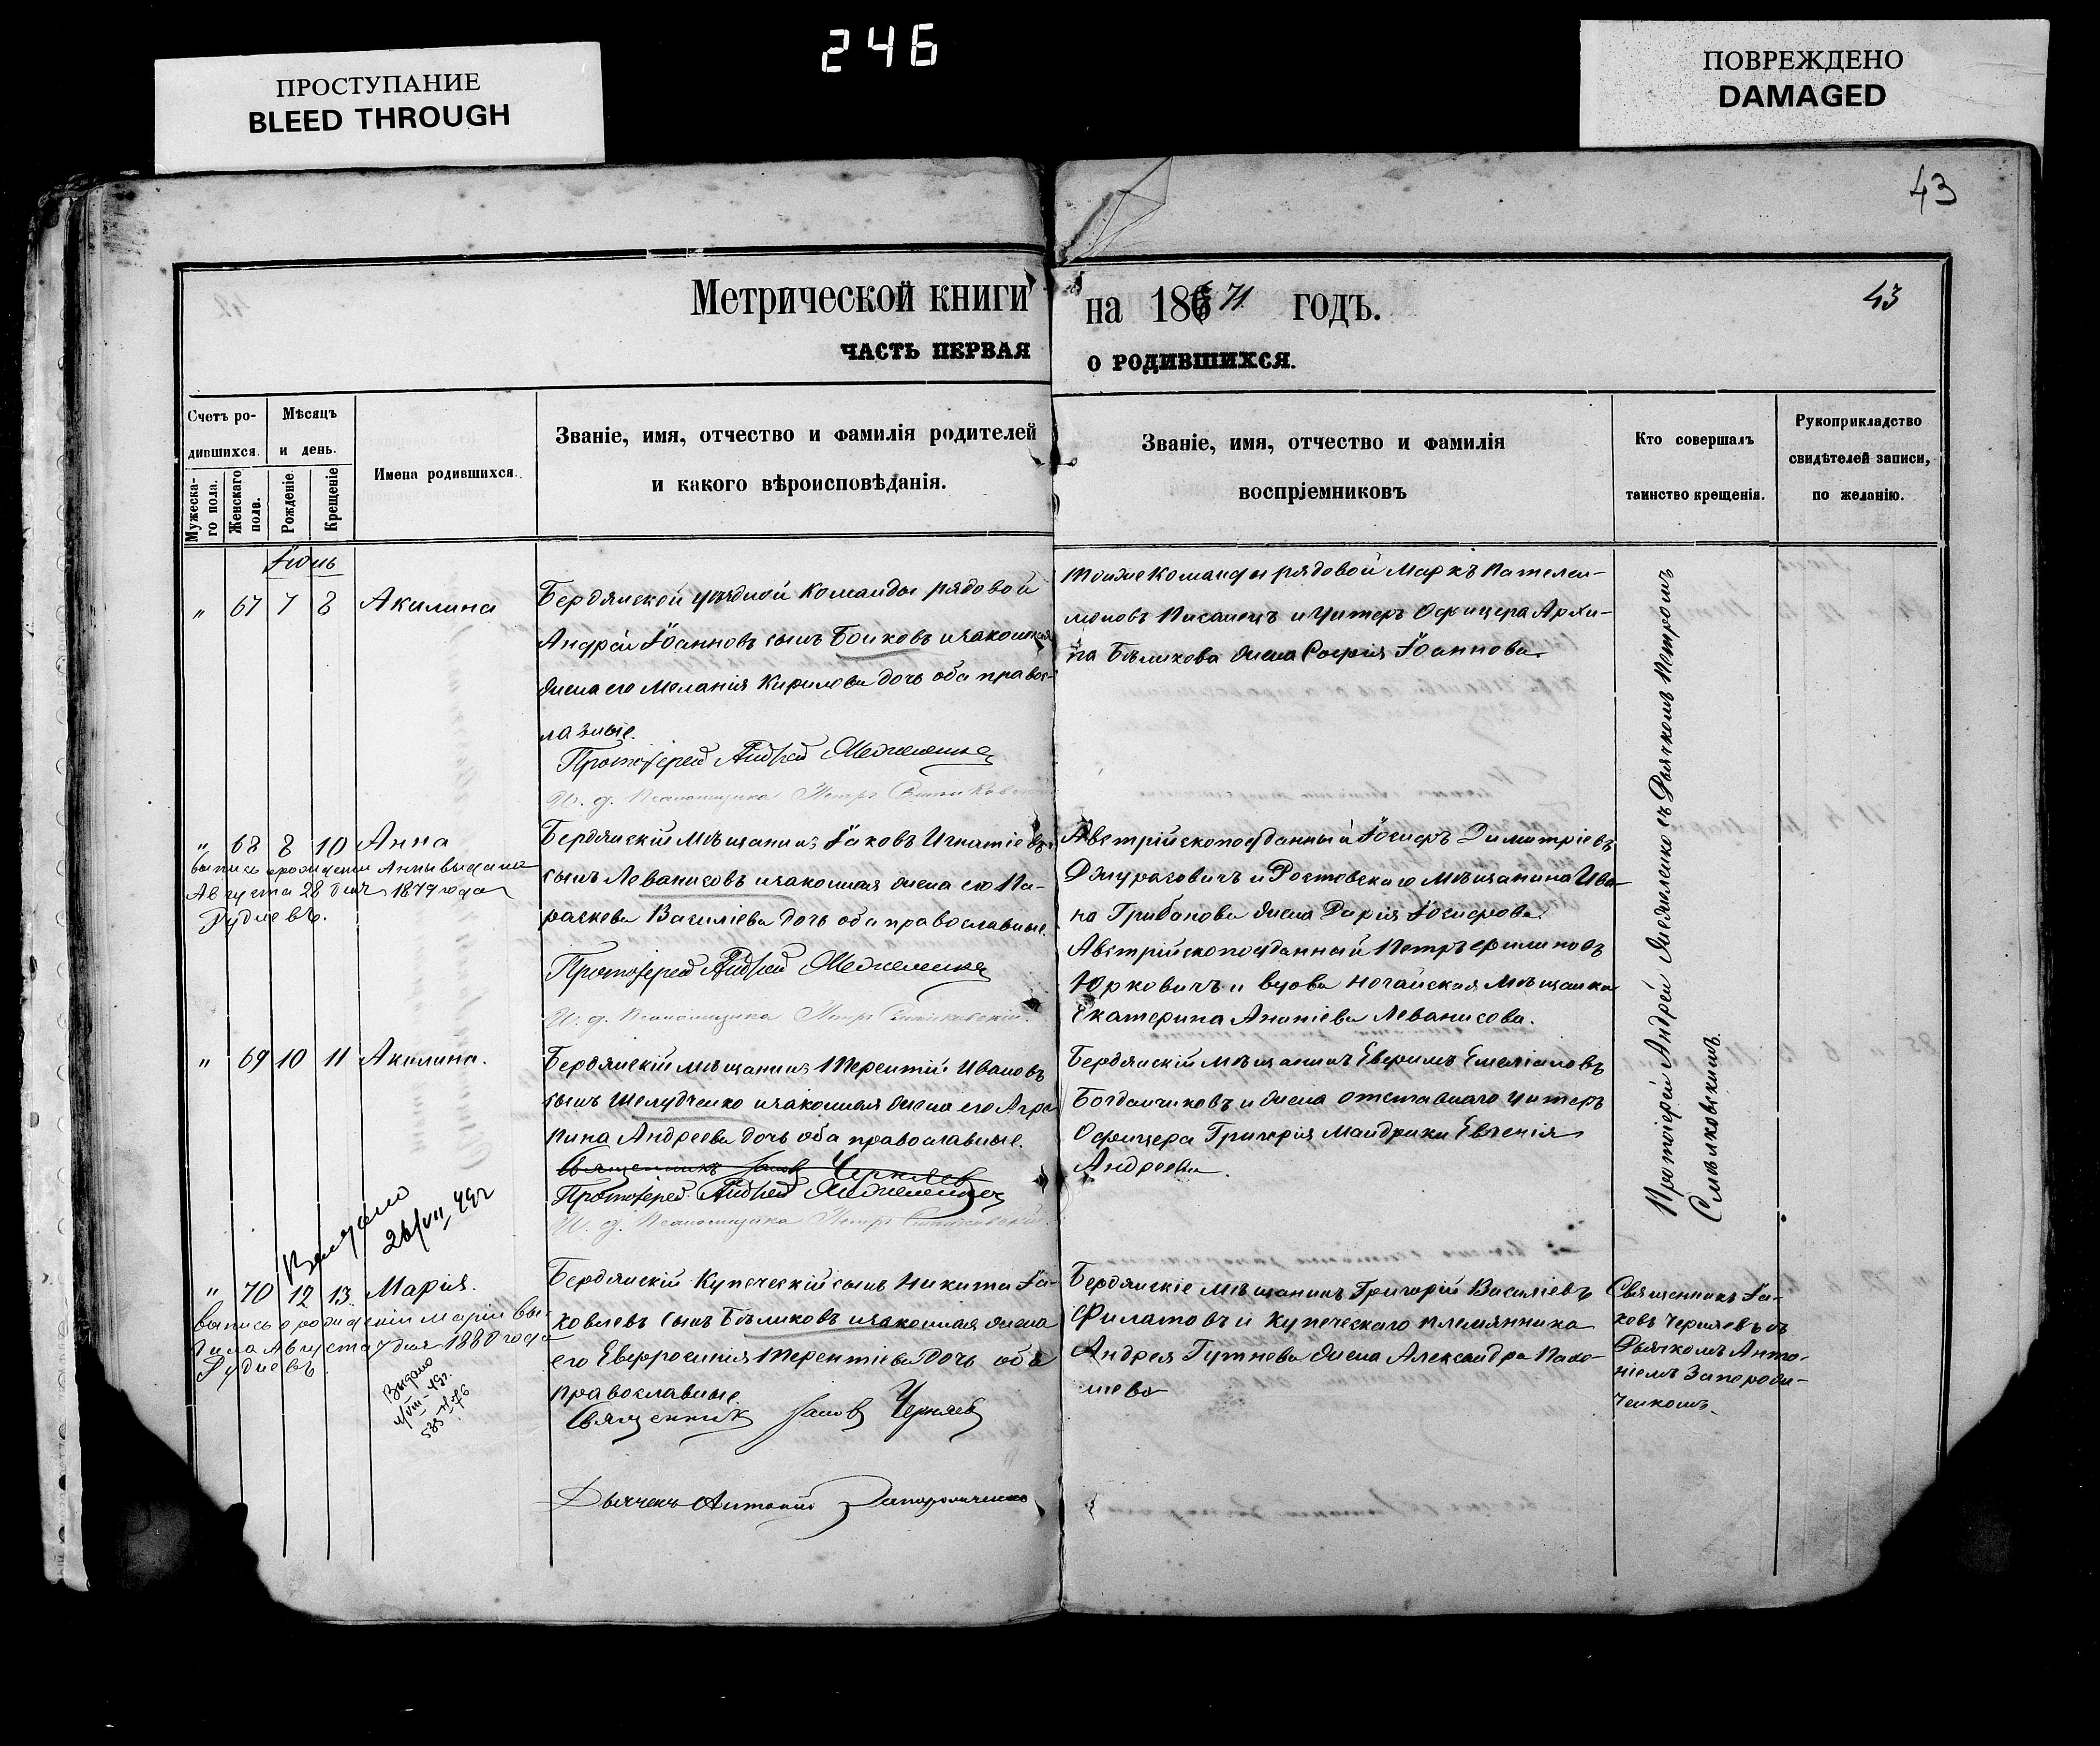 246
ПРОСТУПАНИЕ
BLEED THROUGH
ПОВРЕЖДЕНО
DAMAGED
43
Метрической книги на 186 71 годъ.
43
ЧАСТЬ ПЕРВАЯ О РОДИВШИХСЯ.
Счетъ ро-
дившихся.
Мужеска-
го пола.
Женскаго
пола.
Мѣсяцъ
и день.
Рожденіе.
Крещеніе
Имена родившихся.
Званіе, имя, отчество и фамилія родителей
и какого вѣроисповѣданія.
Званіе, имя, отчество и фамилія
воспріемниковъ
Кто совершалъ
таинство крещенія.
Рукоприкладство
свидѣтелей записи,
по желанію.
Іюнь
" 67 7 8 Акилина
Бердянской уѣздной команды рядовой
Андрей Іоанновъ сынъ Боиковъ и законная
жена его Меланія Кирилова дочь оба правос-
лавные.
Протоіерей Андрей
И. д. Псаломщика Петръ
тойже команды рядовой Маркъ Пателеи-
моновъ Писанецъ и Унтеръ Офицера Архи-
па Бѣликова жена Софія Іоаннова.
" 68 8 10 Анна
выпись о рождении Анны выдана
Августа 28 дня 1879 года
Рудневъ.
Бердянскій мѣщанинъ Іаковъ Игнатіевъ
сынъ Леванисовъ и законная жена его Па-
раскева Василіева дочь оба православные.
Протоіерей Андрей
И. д. Псаломщика Петръ
Австрійскоподданный Іосифъ Димитріевъ
Джурасовичъ и Ростовскаго мѣщанина Ива-
на Грибанова жена Дарія Іосифова.
Австрійскоподданный Петръ Филиповъ
Юрковичъ и вдова Ногайская мѣщанка
Екатерина Ананіева Леванисова.
" 69 10 11 Акилина.
Бердянскій мѣщанинъ Терентій Ивановъ
сынъ Шелудченко и законная жена его Агри
пина Андреева дочь оба православные.
Священникъ Іаковъ Черняев
Протоіерей Андрей
И. д. Псаломщика Петръ
Бердянскій мѣщанинъ Еверимъ Емеліановъ
Богданчиковъ и жена отставнаго унтеръ
Офицера Григорія Мандрики Евгенія
Андреева.
Выдано
26/VII 49г
" 70 12 13 Марія.
выпись о рожденіи Маріи вы-
дана Августа 7 дня 1880 года
Рудневъ.
Выдано
4/VIII-49г.
Бердянскій Купеческій сынъ Никита Іа-
ковлевъ сынъ Бѣликовъ и законная жена
его Евфросинія Терентіева дочь оба
православные
Священникъ Іаковъ Черняев
Дьячекъ Антоній Запорожченко
Бердянскіе мѣщанинъ Григорій Василіевъ
Филатовъ и купеческаго племянника
Андрея Гутнева жена Александра Пахо-
мева
Протоіерей Андрей съ Дьячкомъ Петромъ
Священникъ Іа-
ковъ Черняевъ съ
Дьячкомъ Анто-
ніемъ Запорож-
ченкомъ.